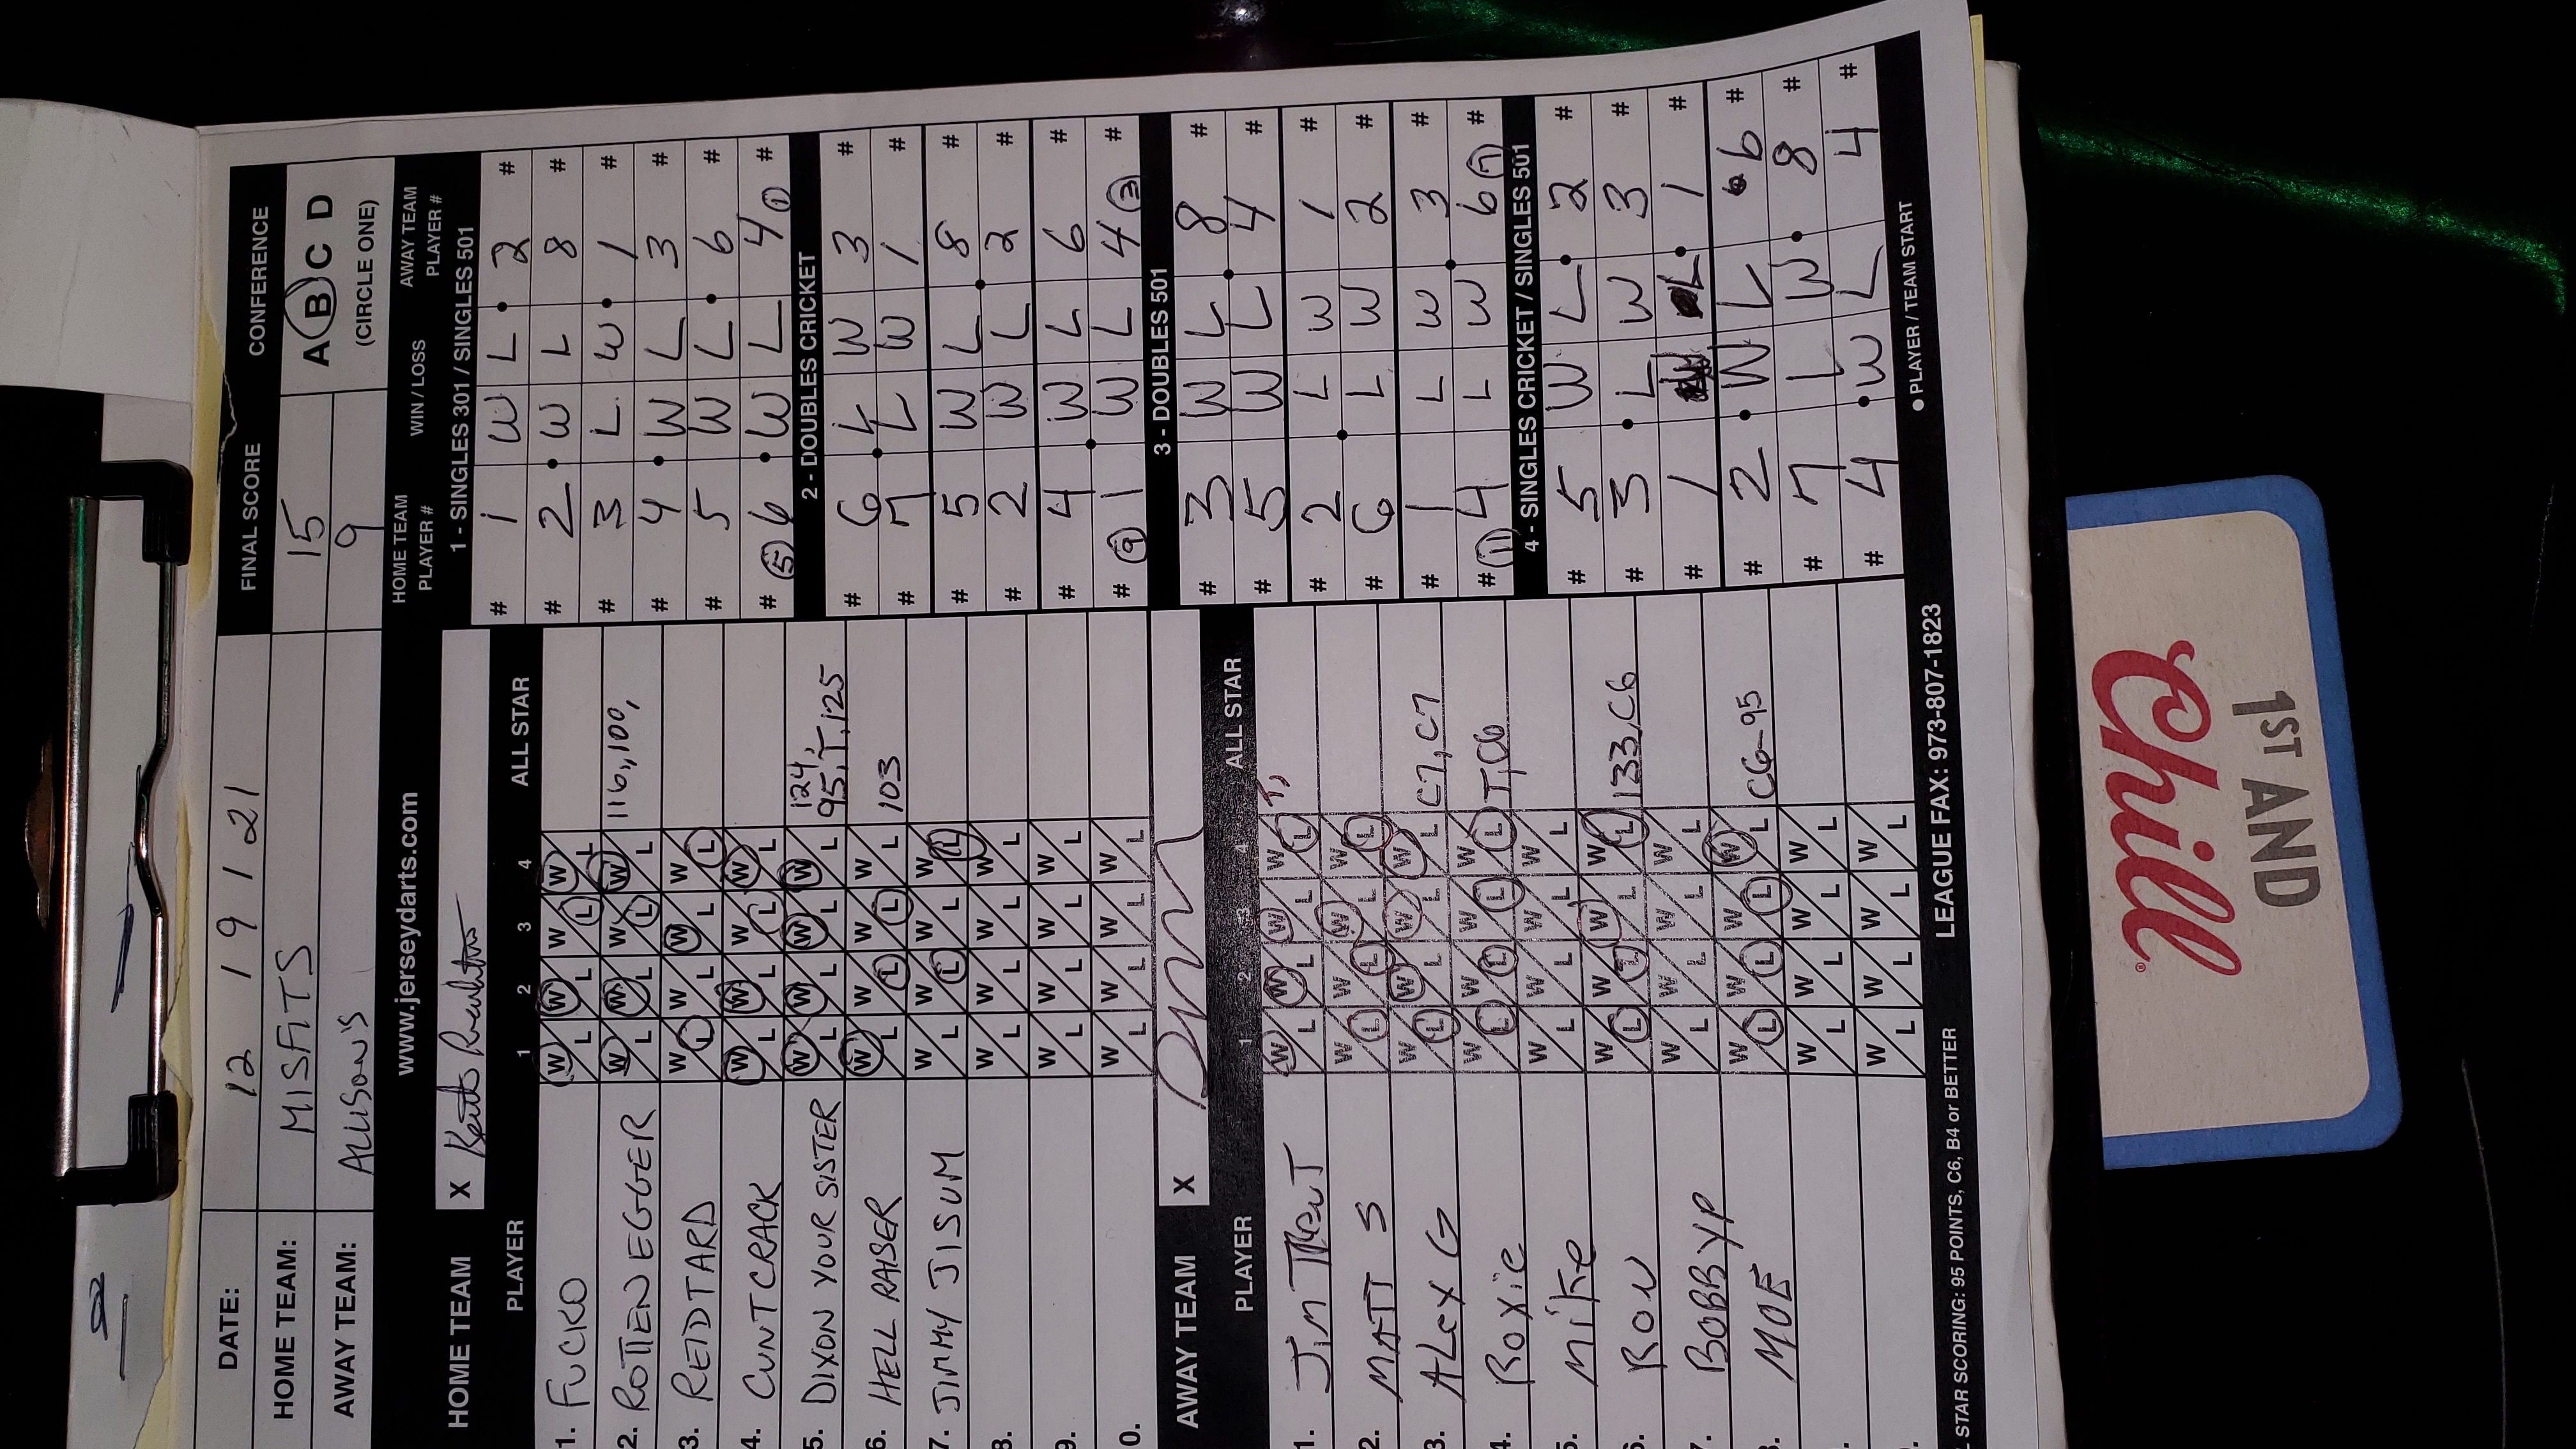 DATE: 12 19 1 21
FINAL SCORE
CONFERENCE
HOME TEAM: MISFITS 15
A B C D
AWAY TEAM: ALLISON'S 9
(CIRCLE ONE)
www.jerseydarts.com
HOME TEAM PLAYER #
WIN / LOSS
AWAY TEAM PLAYER #
HOME TEAM X
PLAYER 1 2 3 4 ALL STAR
1. FUCKO W L W L W L W L
2. ROTTENEGGER W L W L W L W L 116,,100,
3. REIDTARD W L W L W L W L
4. CUNTCRACK W L W L W L W L
5. DIXON YOUR SISTER W L W L W L W L 124, 95,T,125
6. HELL RAISER W L W L W L W L 103
7. JIMMY JISUM W L W L W L W L
8. W L W L W L W L
9. W L W L W L W L
0. W L W L W L W L
AWAY TEAM X
PLAYER 1 2 3 4 ALL STAR
1. W L W L W L W L T,
2. MATT S W L W L W L W L
3. ALex G W L W L W L W L C7,C7
4. Roxie W L W L W L W L T,C6
5. Mike W L W L W L W L
6. RON W L W L W L W L 133,C6
7. BOBBYP W L W L W L W L
8. MOE W L W L W L W L C6-95
W L W L W L W L
W L W L W L W L
STAR SCORING: 95 POINTS, C6, B4 or BETTER
LEAGUE FAX: 973-807-1823
1 - SINGLES 301 / SINGLES 501
# 1 W L 2 #
# 2 W L 8 #
# 3 L W 1 #
# 4 W L 3 #
# 5 W L 6 #
# 5 6 W L 4 1 #
2 - DOUBLES CRICKET
# 6 L W 3 #
# 7 L W 1 #
# 5 W L 8 #
# 2 W L 2 #
# 4 W L 6 #
# 9 1 W L 4 3 #
3 - DOUBLES 501
# 3 W L 8 #
# 5 W L 4 #
# 2 L W 1 #
# 6 L W 2 #
# 1 L W 3 #
# 11 4 L W 6 7 #
4 - SINGLES CRICKET / SINGLES 501
# 5 W L 2 #
# 3 L W 3 #
# 1 W L 1 #
# 2 W L 6 #
# 7 L W 8 #
# 4 W L 4 #
● PLAYER / TEAM START
1ST AND
Chill